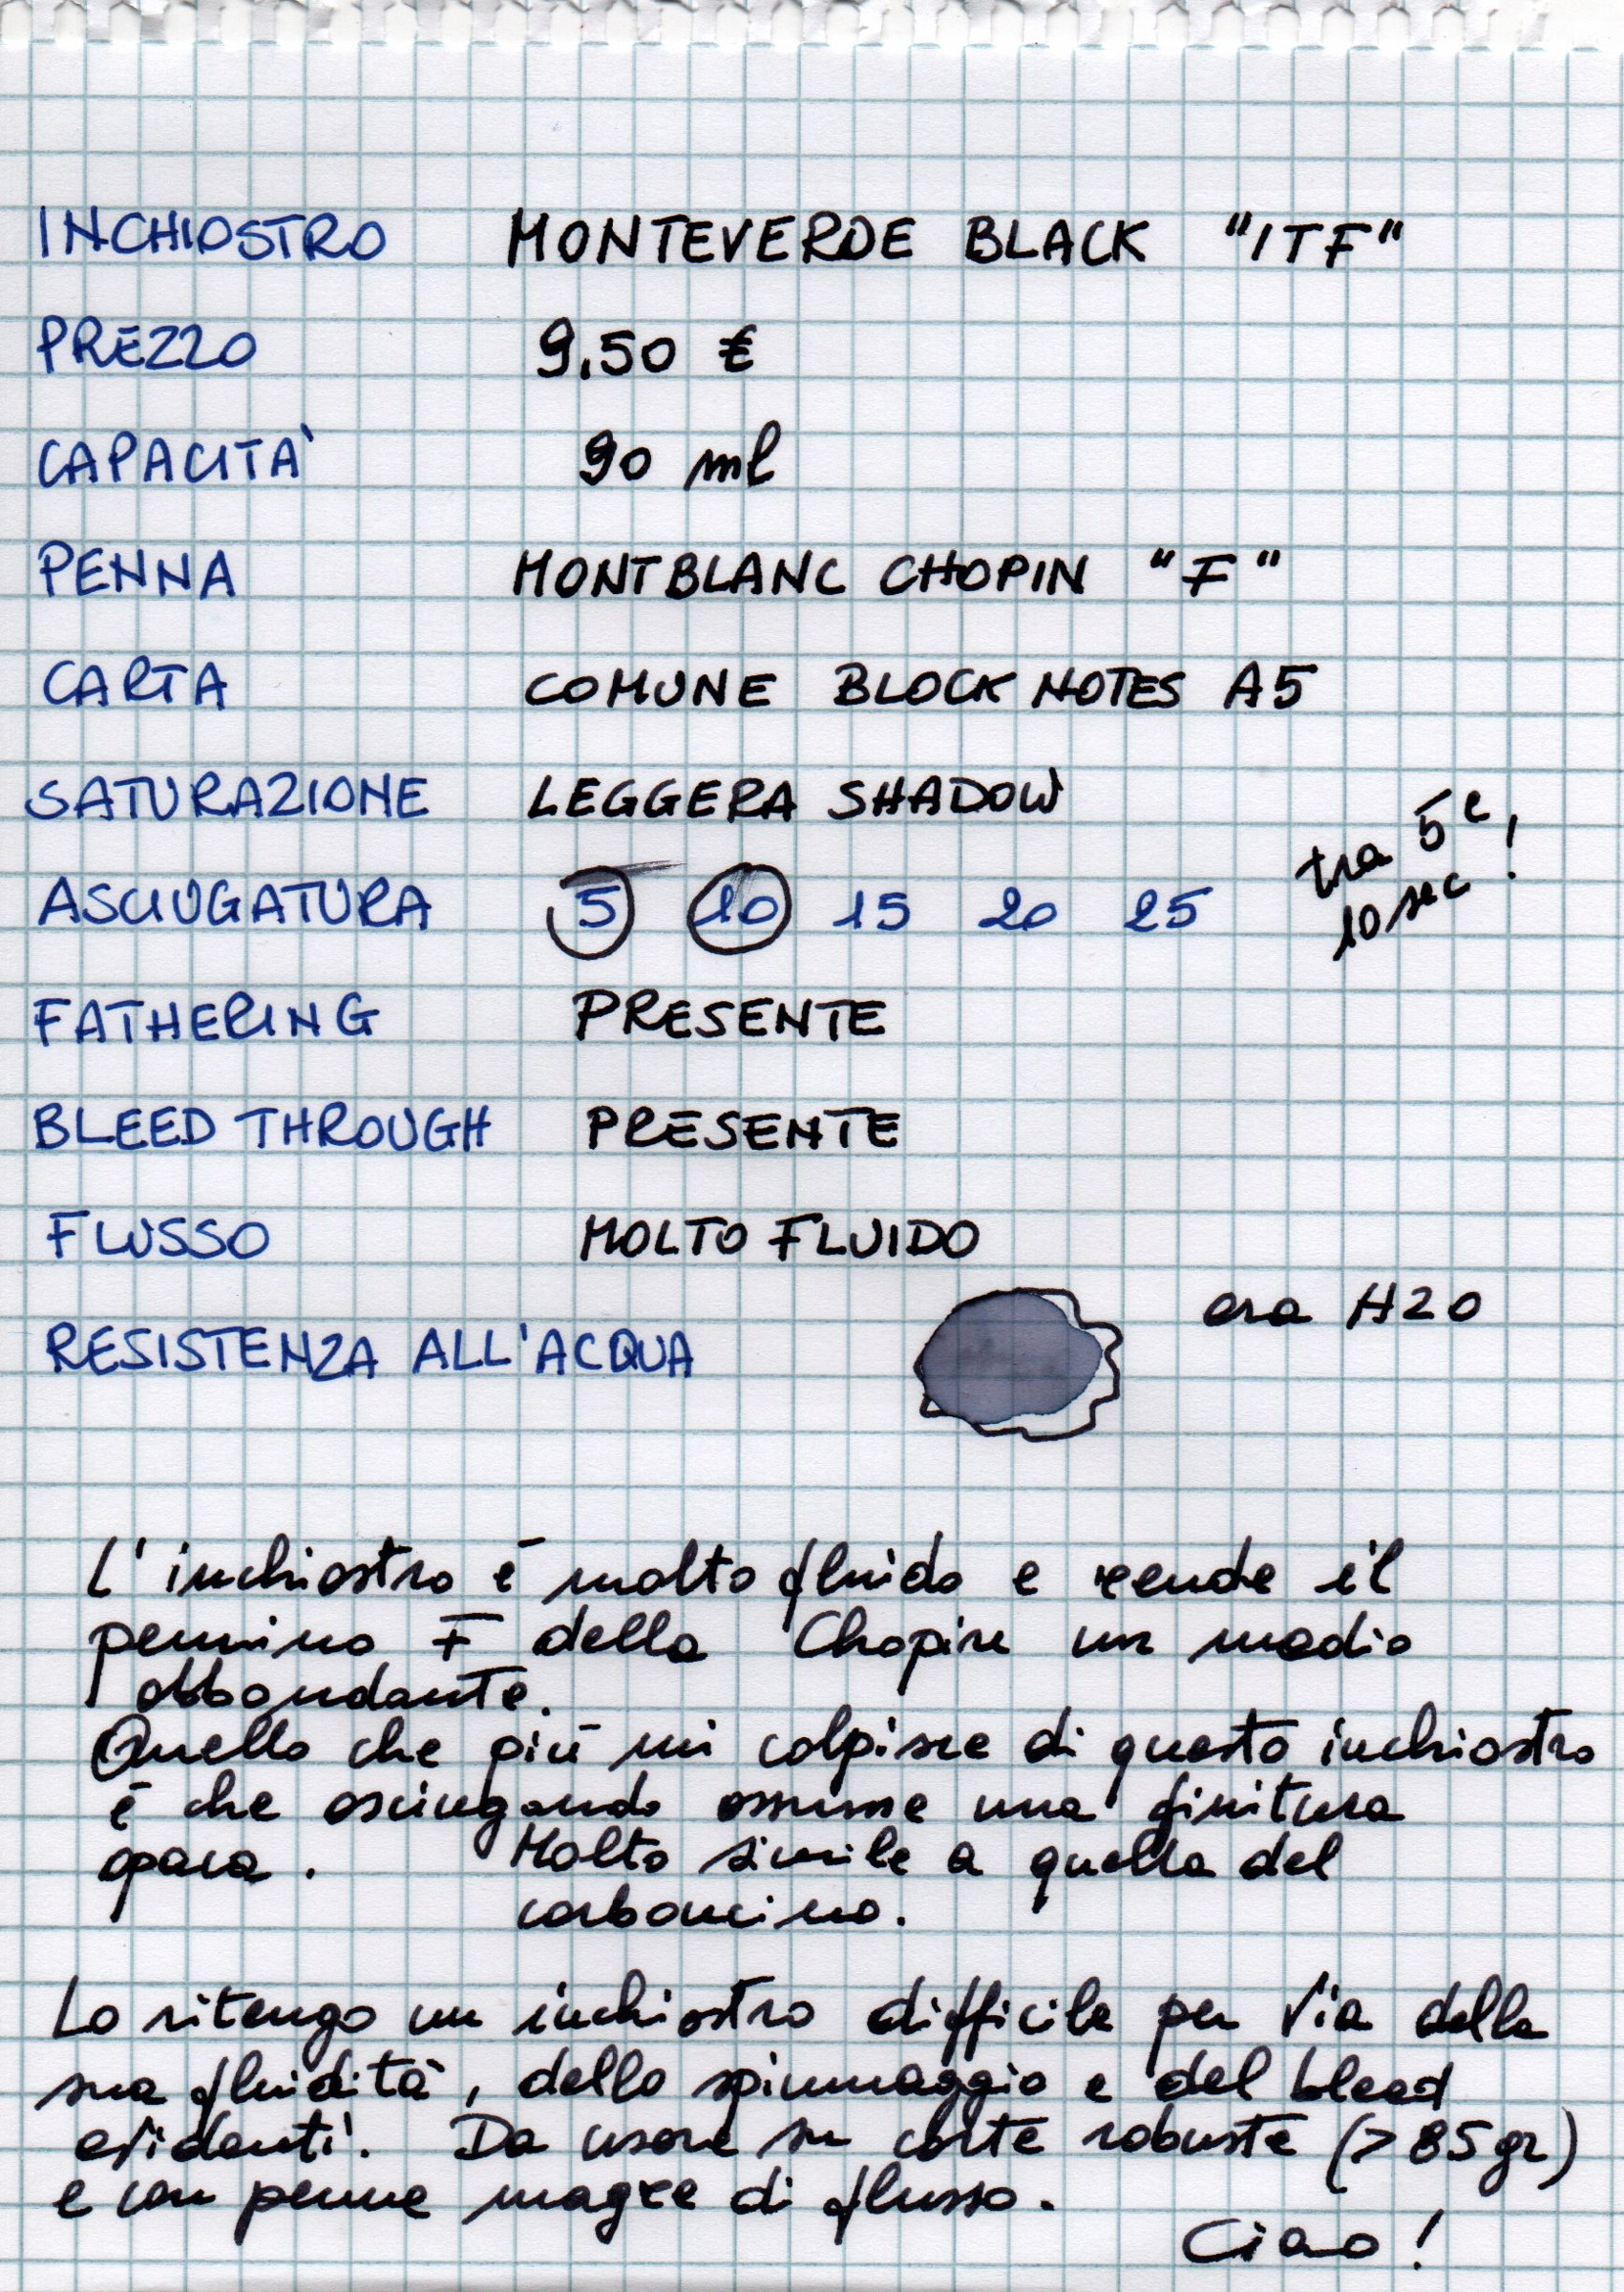 INCHIOSTRO MONTEVERDE BLACK "ITF"
PREZZO 9.50 €
CAPACITA' 90 ml
PENNA MONTBLANC CHOPIN "F"
CARTA COMUNE BLOCK NOTES A5
SATURAZIONE LEGGERA SHADOW
ASCIUGATURA 5 10 15 20 25
tra 5 e
10 sec !
FATHERING PRESENTE
BLEED THROUGH PRESENTE
FLUSSO MOLTO FLUIDO
RESISTENZA ALL'ACQUA
ora H2O
L'inchiostro è molto fluido e rende il
pennino F della Chopin un medio
abbondante.
Quello che più mi colpisce di questo inchiostro
è che asciugando assume una finitura
opaca. Molto simile a quella del
carboncino.
Lo ritengo un inchiostro difficile per via della
sua fluidità, dello spiumaggio e del bleed
evidenti. Da usare su carte robuste (>85gr)
e con penne magre di flusso.
Ciao!